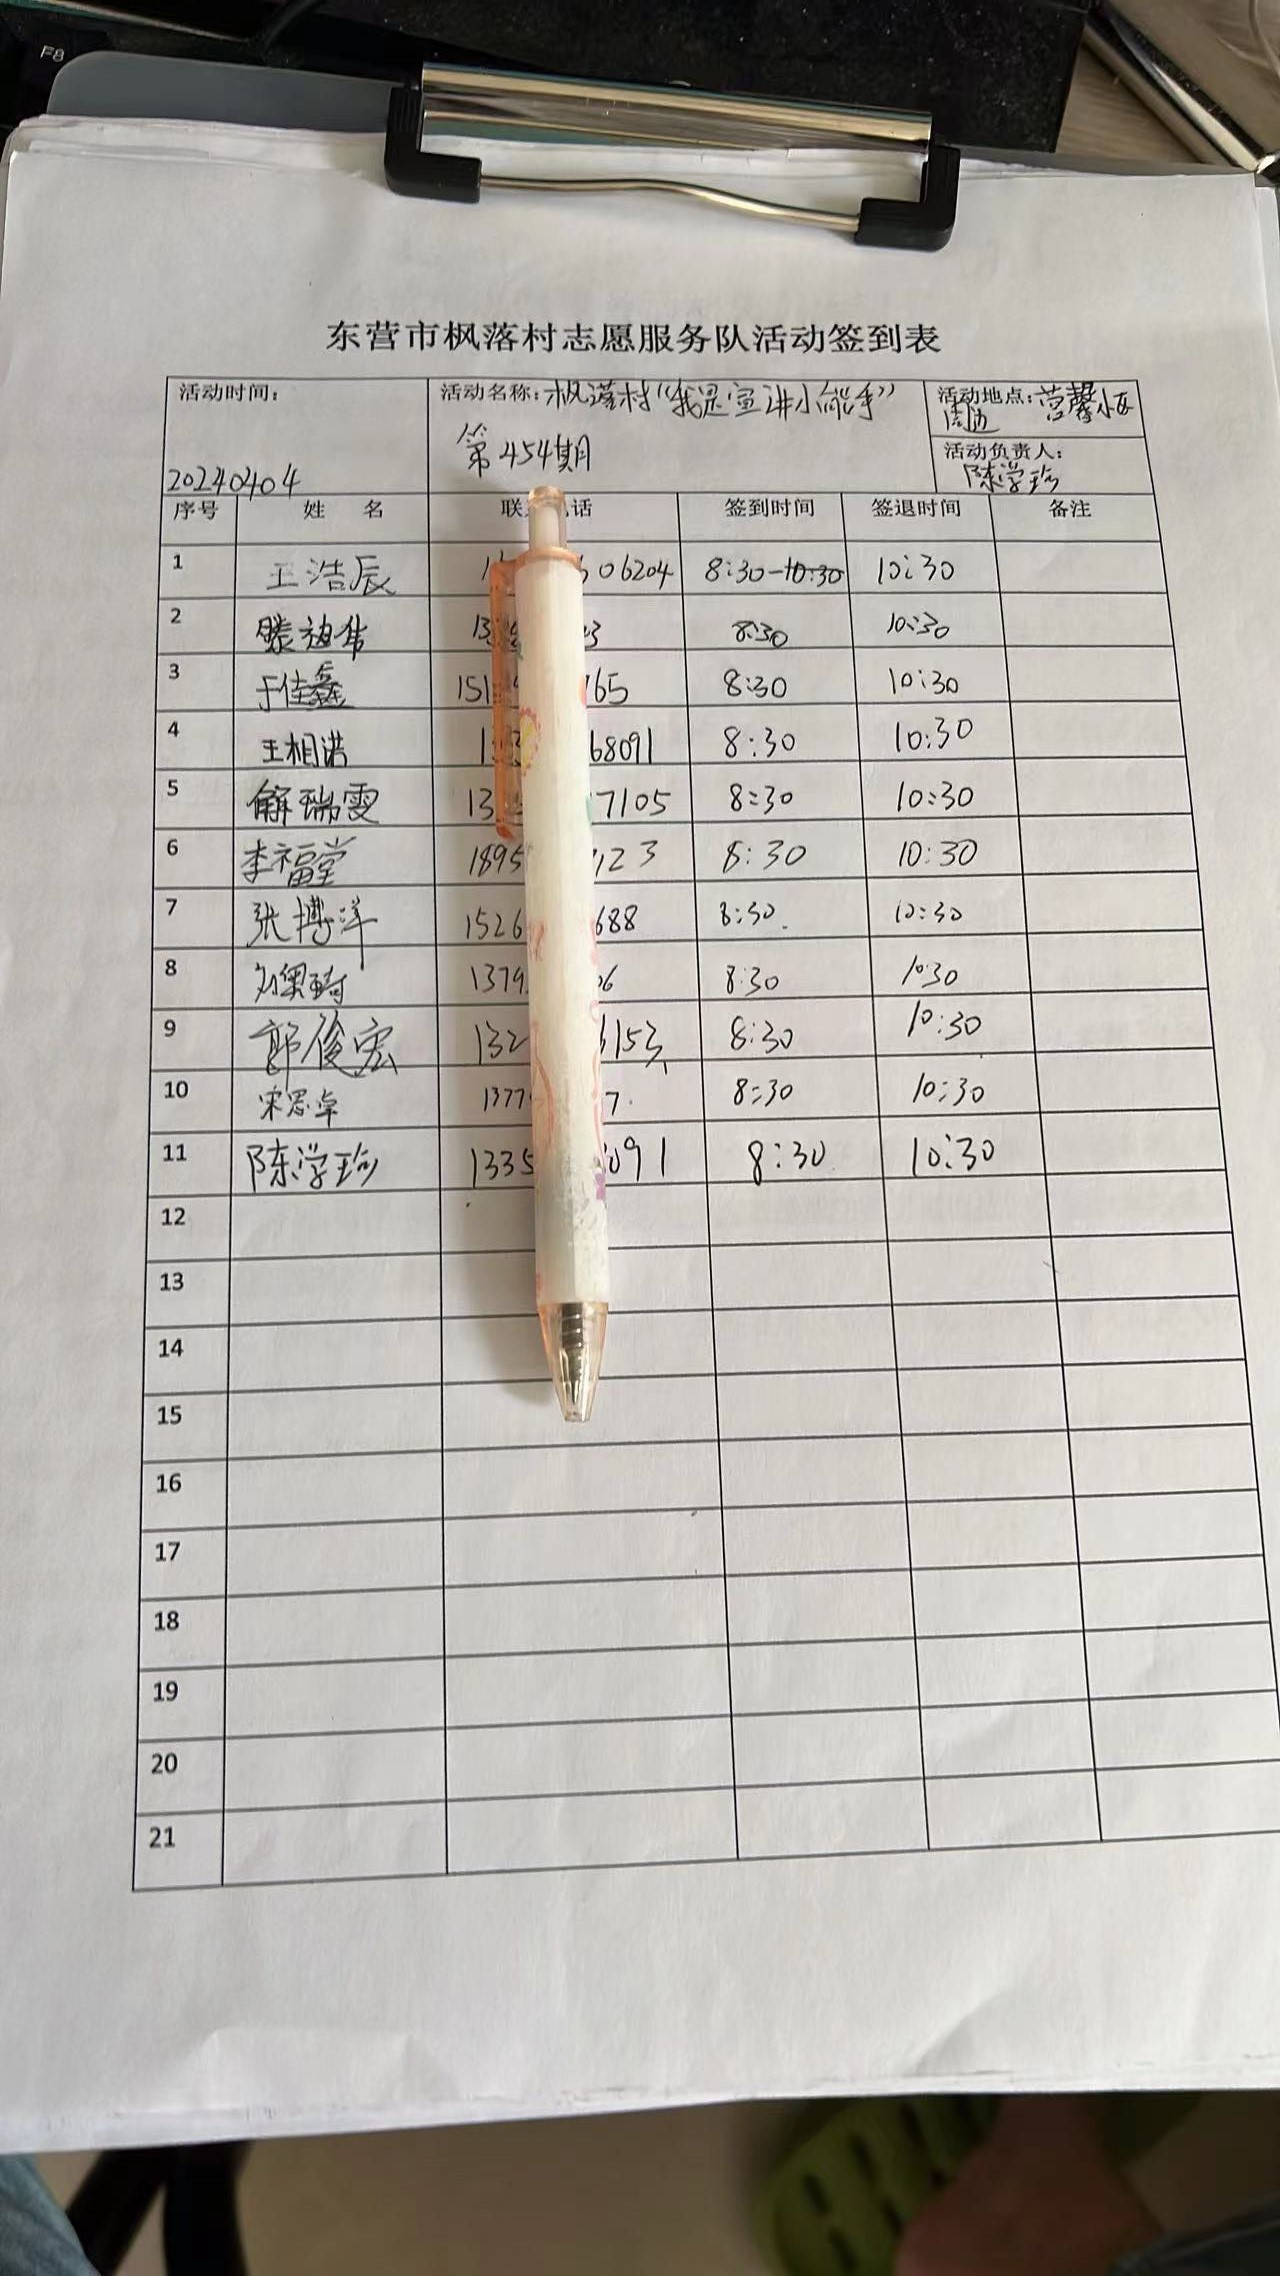 F8
东营市枫落村志愿服务队活动签到表
活动时间: 20240404
活动名称: 枫落村“我是宣讲小能手”
第454期
活动地点: 营馨小区
周边
活动负责人:
陈学珍
序号 姓 名 联 话 签到时间 签退时间 备注
1 王浩辰 06204 8:30-10:30 10:30
2 滕迪伟 13 3 8:30 10:30
3 于佳鑫 151 165 8:30 10:30
4 王相诺 13 68091 8:30 10:30
5 解瑞雯 13 7105 8:30 10:30
6 李福堂 1895 123 8:30 10:30
7 张博洋 1526 688 8:30 10:30
8 1379 06 8:30 10:30
9 郭俊宏 132 153 8:30 10:30
10 宋思卓 1377 7 8:30 10:30
11 陈学珍 1335 091 8:30 10:30
12
13
14
15
16
17
18
19
20
21